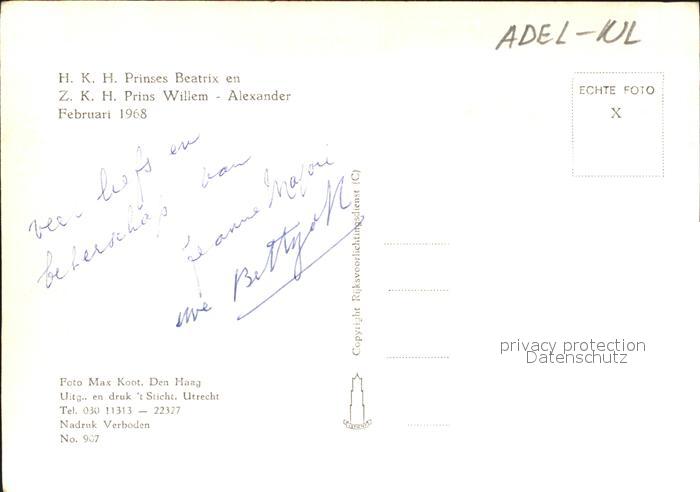 ADEL-NL
H. K. H. Prinses Beatrix en
Z. K. H. Prins Willem - Alexander
Februari 1968
ECHTE FOTO
X
veel liefs en
beterschap van
Jeanne Marie
Betty
Copyright Rijksvoorlichtingsdienst (C)
privacy protection
Datenschutz
Foto Max Koot, Den Haag
Uitg. en druk 't Sticht, Utrecht
Tel. 030 11313 — 22327
Nadruk Verboden
No. 907